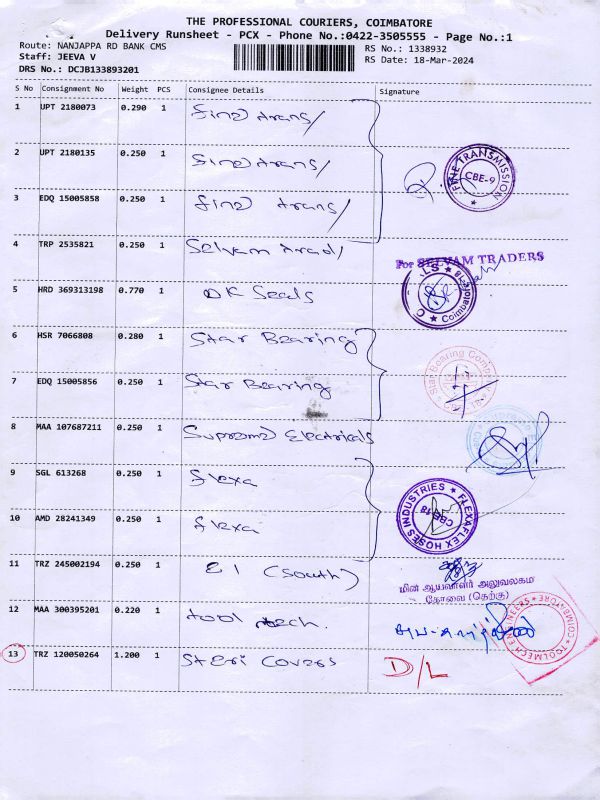 THE PROFESSIONAL COURIERS, COIMBATORE
Delivery Runsheet - PCX - Phone No.:0422-3505555 - Page No.:1
Route: NANJAPPA RD BANK CMS
RS No.: 1338932
Staff: JEEVA V
RS Date: 18-Mar-2024
DRS No.: DCJB133893201
S No Consignment No Weight PCS Consignee Details Signature
1 UPT 2180073 0.290 1 fine trans/
2 UPT 2180135 0.250 1 fine trans/
FINE TRANSMISSION
CBE-9
3 EDQ 15005858 0.250 1 fine trans/
4 TRP 2535821 0.250 1 Selvam trad/
For SELVAM TRADERS
5 HRD 369313198 0.770 1 OK Seals
Coimbatore-18
6 HSR 7066808 0.280 1 Star Bearing
Star Bearing
7 EDQ 15005856 0.250 1 Star Bearing
8 MAA 107687211 0.250 1 Supreme Electricals
9 SGL 613268 0.250 1 flexa
FLEXAFLEX HOSES INDUSTRIES
CBE-18
10 AMD 28241349 0.250 1 flexa
11 TRZ 245002194 0.250 1 EI (South)
மின் ஆய்வாளர் அலுவலகம்
கோவை (தெற்கு)
12 MAA 300395201 0.220 1 tool tech.
TOOLMECH ENGINEERS
COIMBATORE
13 TRZ 120050264 1.200 1 Steri Covers D/L